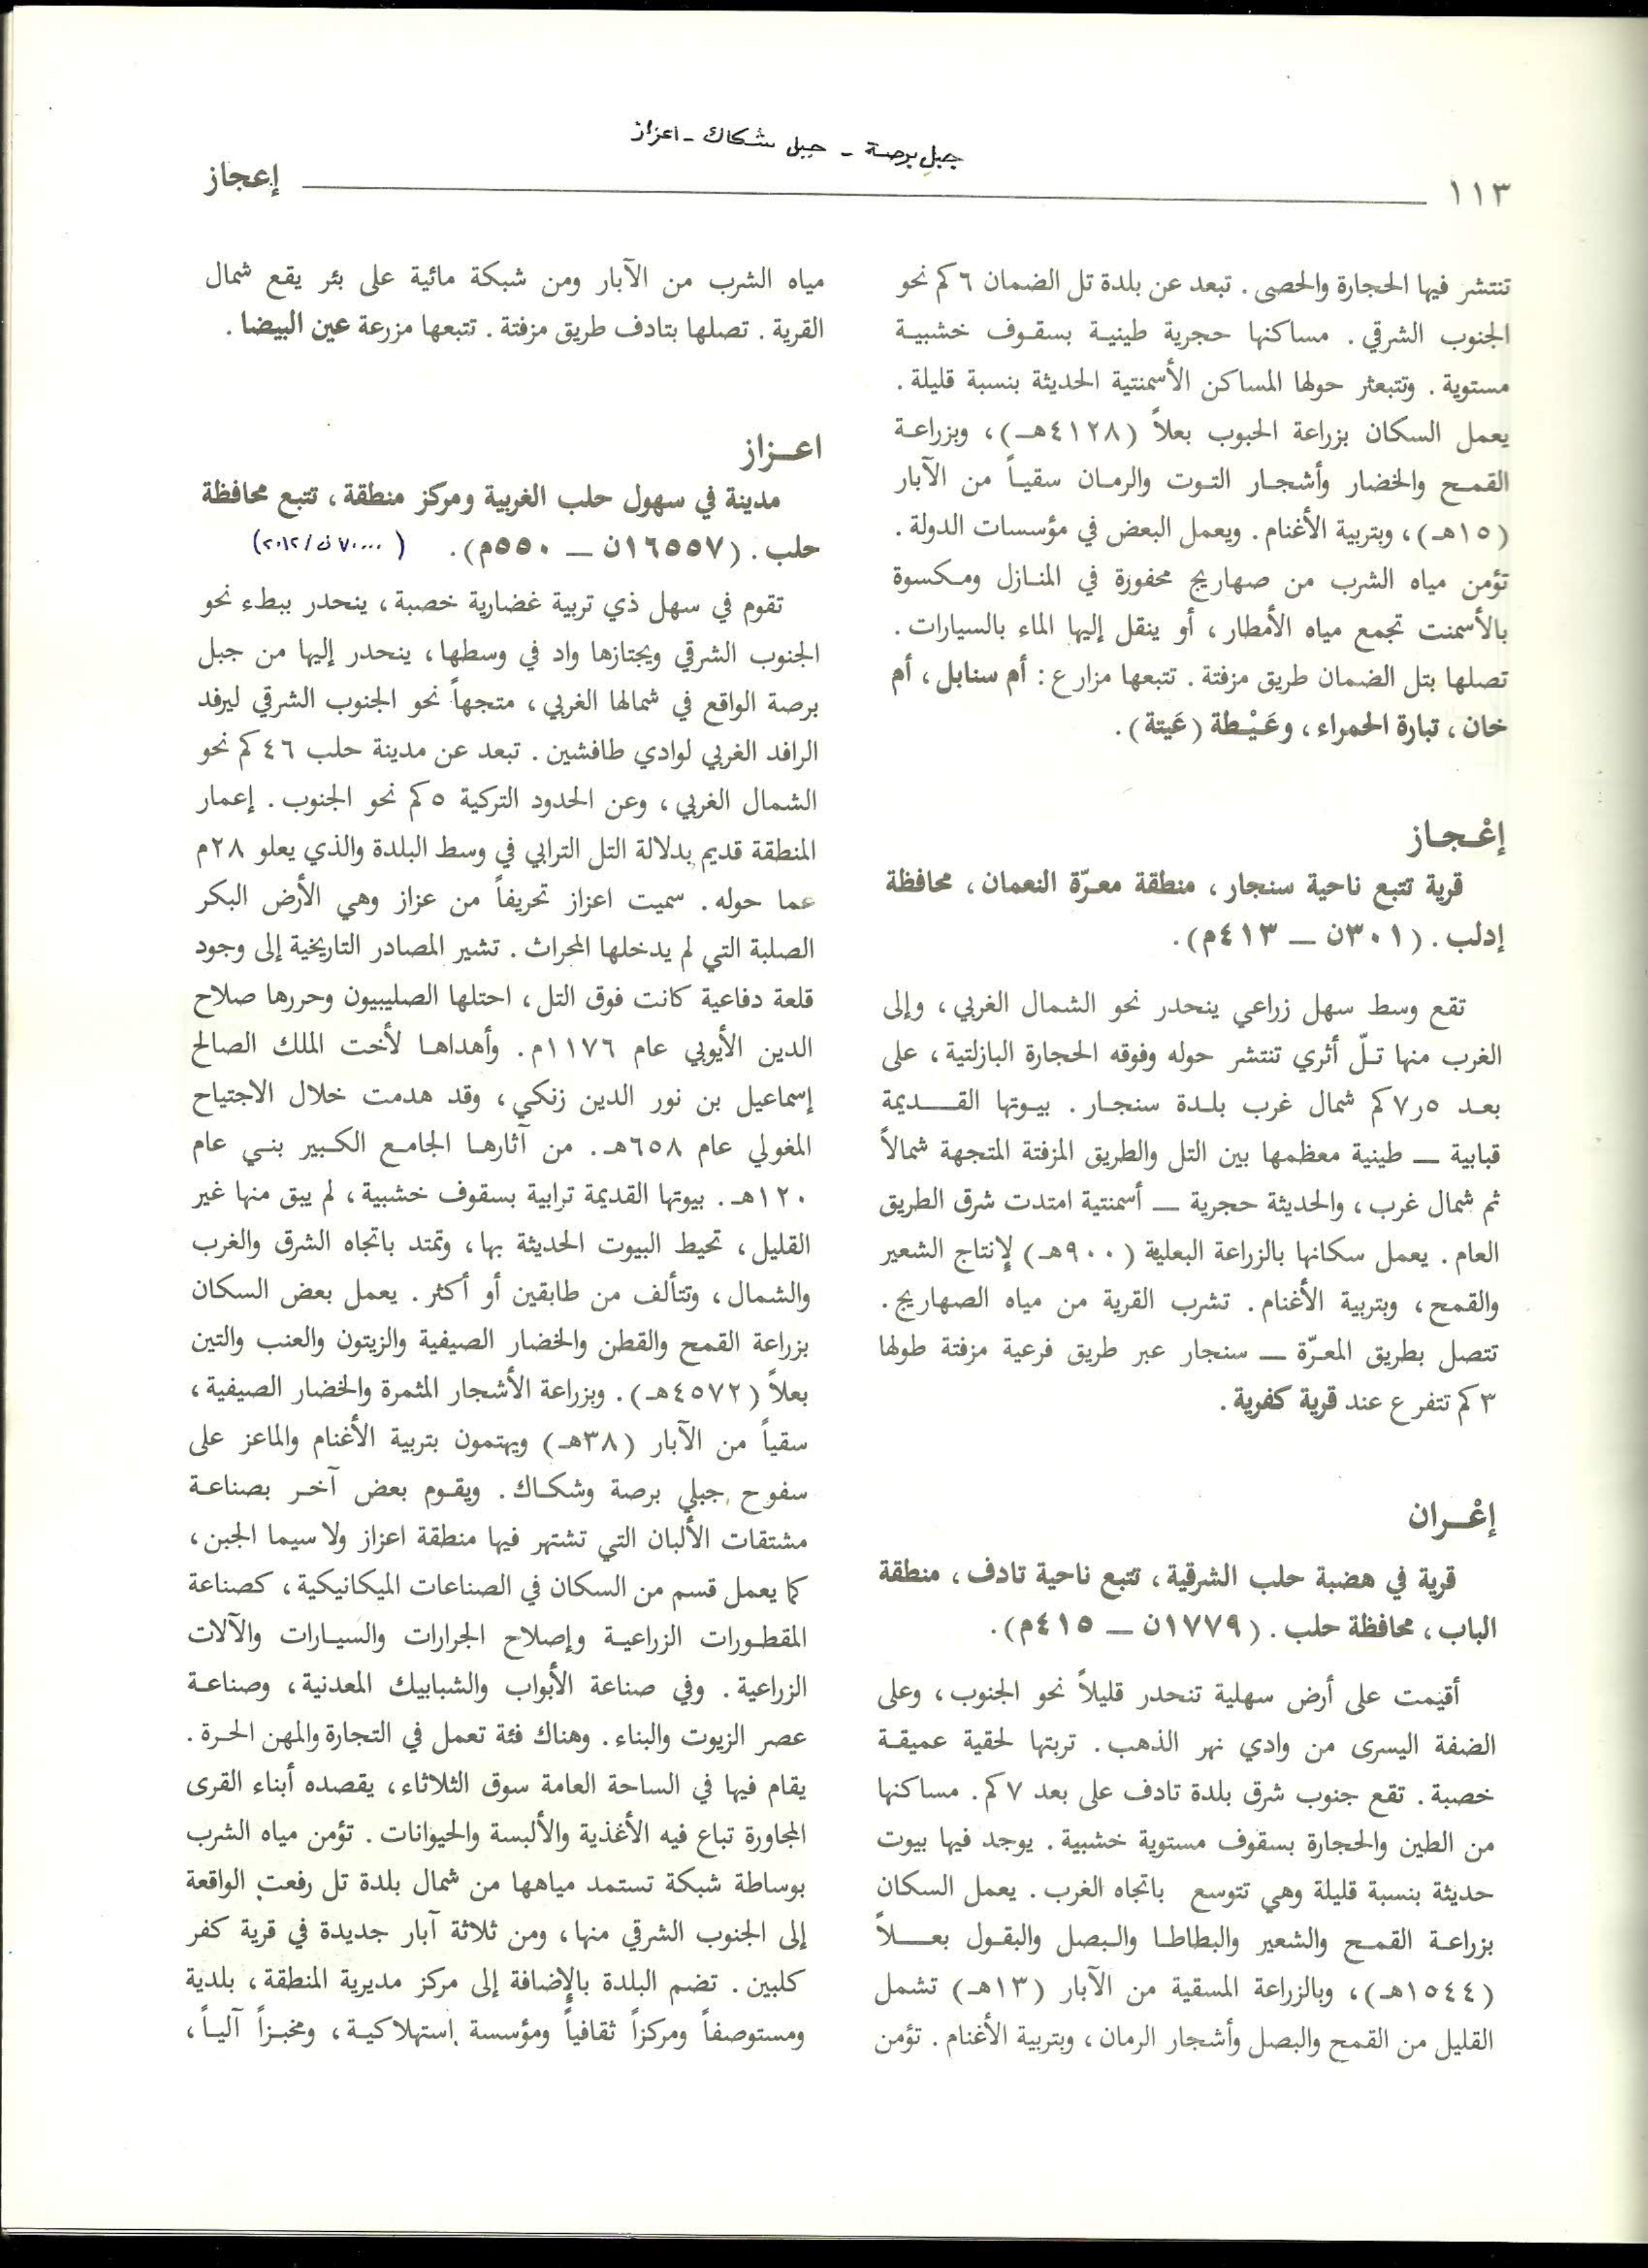 جبل برصة - جبل شكاك - اعزاز
١١٣
إعجاز
تنتشر فيها الحجارة والحصى . تبعد عن بلدة تل الضمان ٦ كم نحو
الجنوب الشرقي . مساكنها حجرية طينية بسقوف خشبية
مستوية . وتتبعثر حولها المساكن الأسمنتية الحديثة بنسبة قليلة .
يعمل السكان بزراعة الحبوب بعلاً (٤١٢٨هـ) ، وبزراعة
القمح والخضار وأشجار التوت والرمان سقياً من الآبار
(١٥هـ) ، وبتربية الأغنام . ويعمل البعض في مؤسسات الدولة .
تؤمن مياه الشرب من صهاريج محفورة في المنازل ومكسوة
بالأسمنت تجمع مياه الأمطار ، أو ينقل إليها الماء بالسيارات .
تصلها بتل الضمان طريق مزفتة . تتبعها مزارع : أم سنابل ، أم
خان ، تبارة الحمراء ، وعَيْطة (عَيتة) .
إعْجاز
قرية تتبع ناحية سنجار ، منطقة معرّة النعمان ، محافظة
إدلب . (٣٠١ن — ٤١٣م) .
تقع وسط سهل زراعي ينحدر نحو الشمال الغربي ، وإلى
الغرب منها تلّ أثري تنتشر حوله وفوقه الحجارة البازلتية ، على
بعد ٧٫٥كم شمال غرب بلدة سنجار . بيوتها القديمة
قبابية — طينية معظمها بين التل والطريق المزفتة المتجهة شمالاً
ثم شمال غرب ، والحديثة حجرية — أسمنتية امتدت شرق الطريق
العام . يعمل سكانها بالزراعة البعلية (٩٠٠هـ) لإنتاج الشعير
والقمح ، وبتربية الأغنام . تشرب القرية من مياه الصهاريج .
تتصل بطريق المعرّة — سنجار عبر طريق فرعية مزفتة طولها
٣كم تتفرع عند قرية كفرية .
إعْران
قرية في هضبة حلب الشرقية ، تتبع ناحية تادف ، منطقة
الباب ، محافظة حلب . (١٧٧٩ن — ٤١٥م) .
أقيمت على أرض سهلية تنحدر قليلاً نحو الجنوب ، وعلى
الضفة اليسرى من وادي نهر الذهب . تربتها لحقية عميقة
خصبة . تقع جنوب شرق بلدة تادف على بعد ٧كم . مساكنها
من الطين والحجارة بسقوف مستوية خشبية . يوجد فيها بيوت
حديثة بنسبة قليلة وهي تتوسع باتجاه الغرب . يعمل السكان
بزراعة القمح والشعير والبطاطا والبصل والبقول بعلاً
(١٥٤٤هـ) ، وبالزراعة المسقية من الآبار (١٣هـ) تشمل
القليل من القمح والبصل وأشجار الرمان ، وبتربية الأغنام . تؤمن
مياه الشرب من الآبار ومن شبكة مائية على بئر يقع شمال
القرية . تصلها بتادف طريق مزفتة . تتبعها مزرعة عين البيضا .
اعزاز
مدينة في سهول حلب الغربية ومركز منطقة ، تتبع محافظة
حلب . (١٦٥٥٧ن — ٥٥٠م) . (٧٠٠٠٠ن/٢٠١٢)
تقوم في سهل ذي تربية غضارية خصبة ، ينحدر ببطء نحو
الجنوب الشرقي ويجتازها واد في وسطها ، ينحدر إليها من جبل
برصة الواقع في شمالها الغربي ، متجهاً نحو الجنوب الشرقي ليرفد
الرافد الغربي لوادي طافشين . تبعد عن مدينة حلب ٤٦ كم نحو
الشمال الغربي ، وعن الحدود التركية ٥كم نحو الجنوب . إعمار
المنطقة قديم بدلالة التل الترابي في وسط البلدة والذي يعلو ٢٨م
عما حوله . سميت اعزاز تحريفاً من عزاز وهي الأرض البكر
الصلبة التي لم يدخلها المحراث . تشير المصادر التاريخية إلى وجود
قلعة دفاعية كانت فوق التل ، احتلها الصليبيون وحررها صلاح
الدين الأيوبي عام ١١٧٦م . وأهداها لأخت الملك الصالح
إسماعيل بن نور الدين زنكي ، وقد هدمت خلال الاجتياح
المغولي عام ٦٥٨هـ . من آثارها الجامع الكبير بني عام
١٢٠هـ . بيوتها القديمة ترابية بسقوف خشبية ، لم يبق منها غير
القليل ، تحيط البيوت الحديثة بها ، وتمتد باتجاه الشرق والغرب
والشمال ، وتتألف من طابقين أو أكثر . يعمل بعض السكان
بزراعة القمح والقطن والخضار الصيفية والزيتون والعنب والتين
بعلاً (٤٥٧٢هـ) . وبزراعة الأشجار المثمرة والخضار الصيفية ،
سقياً من الآبار (٣٨هـ) ويهتمون بتربية الأغنام والماعز على
سفوح جبلي برصة وشكاك . ويقوم بعض آخر بصناعة
مشتقات الألبان التي تشتهر فيها منطقة اعزاز ولا سيما الجبن ،
كما يعمل قسم من السكان في الصناعات الميكانيكية ، كصناعة
المقطورات الزراعية وإصلاح الجرارات والسيارات والآلات
الزراعية . وفي صناعة الأبواب والشبابيك المعدنية ، وصناعة
عصر الزيوت والبناء . وهناك فئة تعمل في التجارة والمهن الحرة .
يقام فيها في الساحة العامة سوق الثلاثاء ، يقصده أبناء القرى
المجاورة تباع فيه الأغذية والألبسة والحيوانات . تؤمن مياه الشرب
بوساطة شبكة تستمد مياهها من شمال بلدة تل رفعت الواقعة
إلى الجنوب الشرقي منها ، ومن ثلاثة آبار جديدة في قرية كفر
كلبين . تضم البلدة بالإضافة إلى مركز مديرية المنطقة ، بلدية
ومستوصفاً ومركزاً ثقافياً ومؤسسة استهلاكية ، ومخبزاً آلياً ،